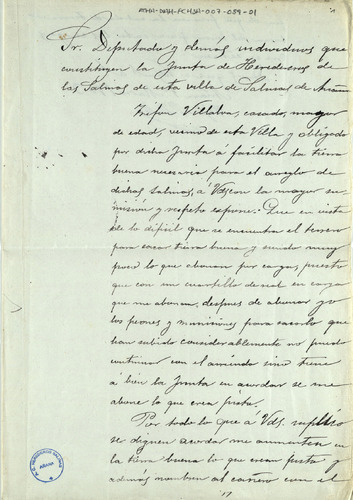 ATHA-DAH-FCHSA-007-059-01
Sr. Diputado y demás individuos que
constituyen la Junta de Herederos de
las Salinas de esta villa de Salinas de Añana
Trifon Villalva, casado, mayor
de edad, vecino de esta Villa y obligado
por dicha Junta á facilitar la tierra
buena necesaria para el arreglo de
dichas salinas, a Vds con la mayor su-
mision y respeto expone: Que en vista
de lo dificil que se encuentra el terreno
para sacar tierra buena y siendo muy
poco lo que abonan por carga, puesto
que con un cuartillo de sal en carga
que me abonan, despues de abonar yo
los peones y municiones para sacarlo que
han subido considerablemente no puedo
continuar con el arriendo sino tiene
á bien la Junta en acordar se me
abone lo que crea justo.
Por todo lo que á Vds. suplico
se dignen acordar me aumenten en
la tierra buena lo que crean justo y
además nombren al cañero con el
AÑANA